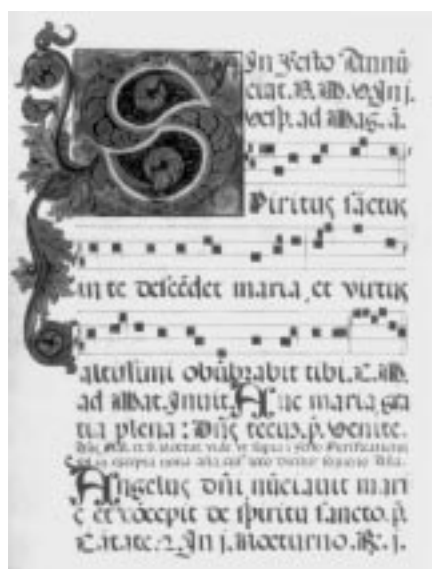 In Festo Annũ
ciat. B. M. V. In j.
vesp. ad Mag. ã.
Spiritus sãctus
in te descẽdet maria, et virtus
altissimi obũbrabit tibi. E. M.
ad Mat. Inuit. Aue maria, gra
tia plena: Dñs tecũ. p. Venite.
Angelus dñi nũciauit mari
e et cõcepit de spiritu sancto. p.
In j. Nocturno. R. j.